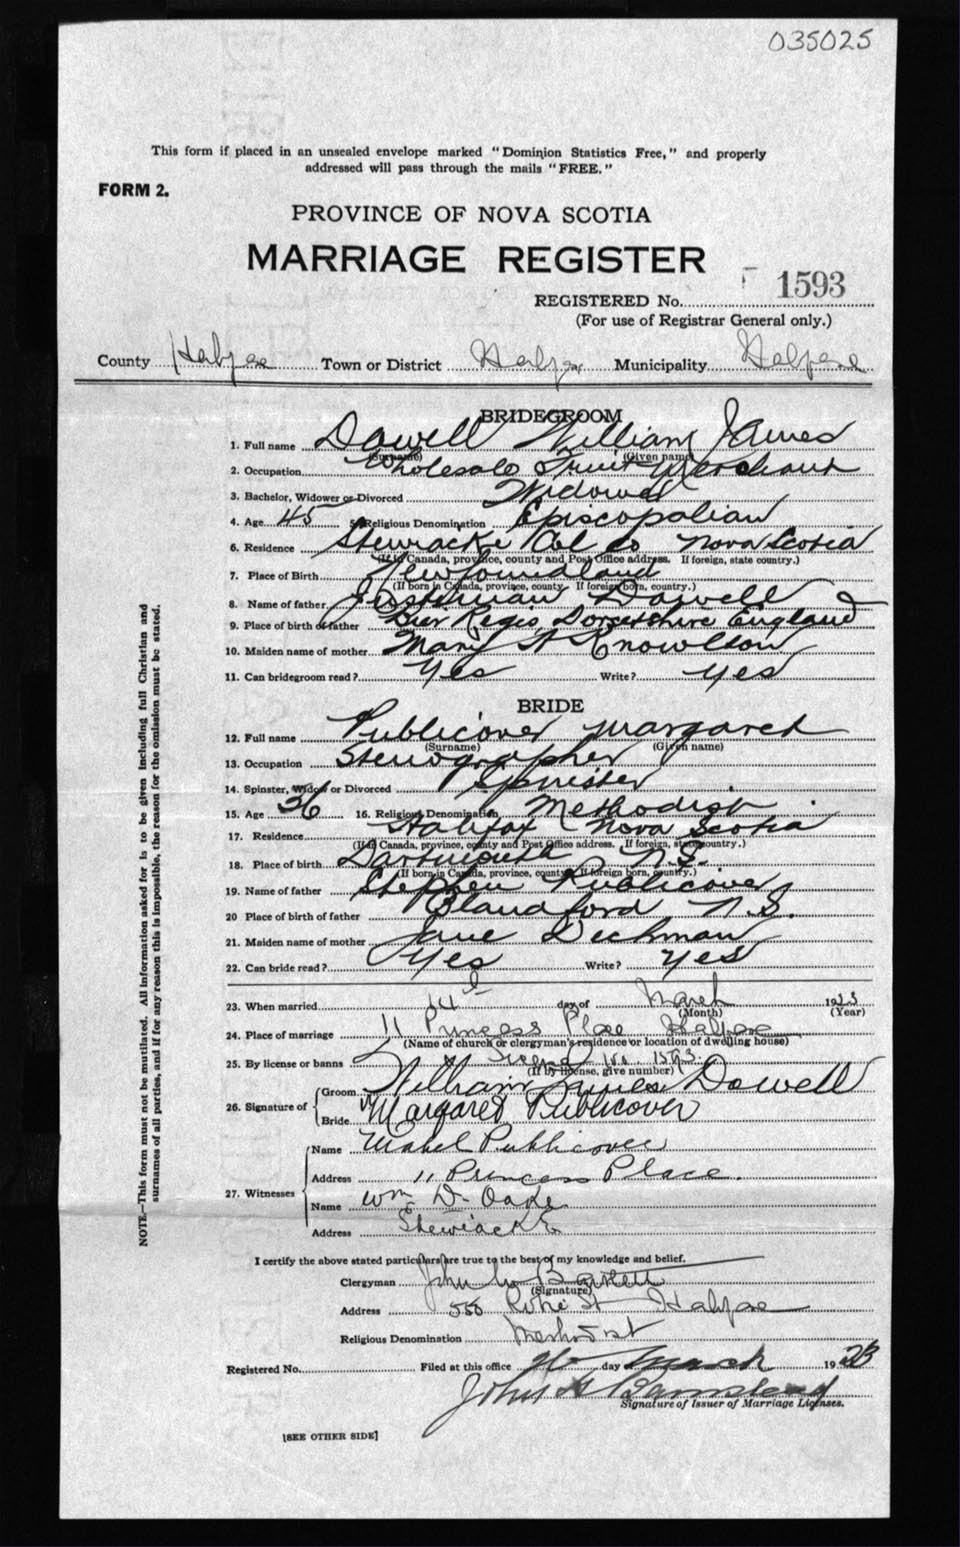 035025
This form if placed in an unsealed envelope marked "Dominion Statistics Free," and properly
addressed will pass through the mails "FREE."
FORM 2.
PROVINCE OF NOVA SCOTIA
MARRIAGE REGISTER
REGISTERED No. 1593
(For use of Registrar General only.)
County Halifax Town or District Halifax Municipality Halifax
BRIDEGROOM
1. Full name Dowell William James
(Surname) (Given name)
2. Occupation Wholesale Fruit Merchant
3. Bachelor, Widower or Divorced Widower
4. Age 45 5. Religious Denomination Episcopalian
6. Residence Stewiacke Col Co Nova Scotia
(If in Canada, province, county and Post Office address. If foreign, state country.)
7. Place of Birth Newfoundland
(If born in Canada, province, county. If foreign born, country.)
8. Name of father Dowell
9. Place of birth of father Bier Regis Dorsetshire England
10. Maiden name of mother Mary A Knowlton
11. Can bridegroom read? Yes Write? Yes
BRIDE
12. Full name Publicover Margaret
(Surname) (Given name)
13. Occupation Stenographer
14. Spinster, Widow or Divorced Spinster
15. Age 36 16. Religious Denomination Methodist
17. Residence Halifax Nova Scotia
(If in Canada, province, county and Post Office address. If foreign, state country.)
18. Place of birth Dartmouth N.S.
(If born in Canada, province, county. If foreign born, country.)
19. Name of father Stephen Publicover
20 Place of birth of father Blandford N.S.
21. Maiden name of mother Jane Deckman
22. Can bride read? Yes Write? Yes
23. When married 14th day of March 1923
(Month) (Year)
24. Place of marriage 11 Princess Place Halifax
(Name of church or clergyman's residence or location of dwelling house)
25. By license or banns License No. 1593
(If by license, give number)
26. Signature of
Groom William James Dowell
Bride Margaret Publicover
27. Witnesses
Name Mabel Publicover
Address 11 Princess Place.
Name Wm D. Oake
Address Stewiacke
I certify the above stated particulars are true to the best of my knowledge and belief.
Clergyman John W Bartlett
(Signature)
Address Robie St Halifax
Religious Denomination Methodist
Registered No. Filed at this office 26 day March 1923
John H Barnstead
Signature of Issuer of Marriage Licenses.
[SEE OTHER SIDE]
NOTE—This form must not be mutilated. All information asked for is to be given including full Christian and
surnames of all parties, and if for any reason this is impossible, the reason for the omission must be stated.